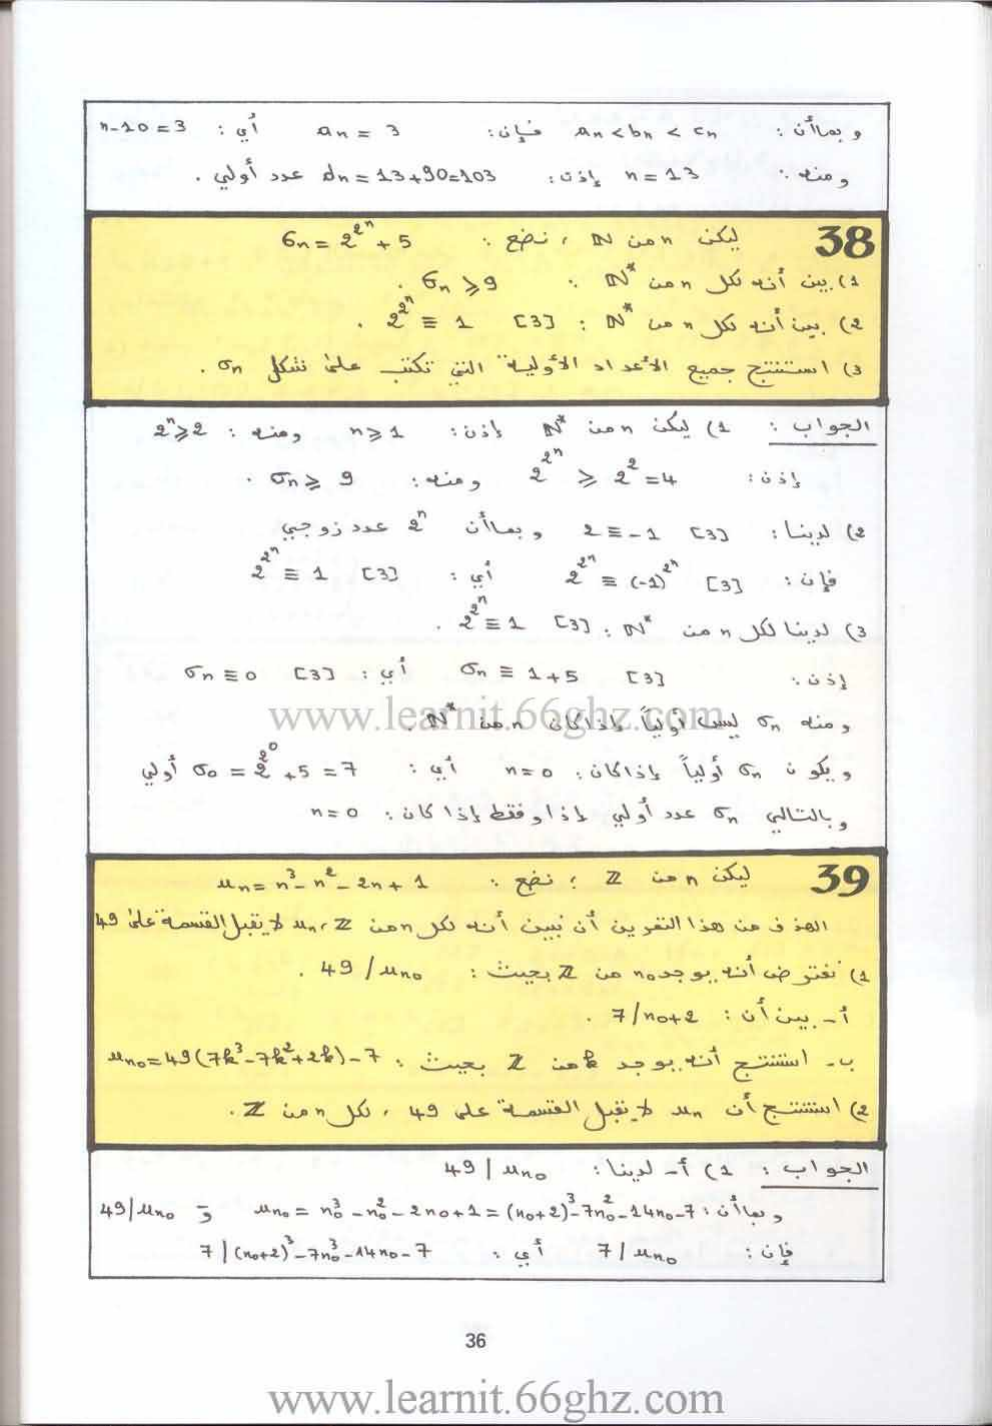 وبما أن : an < bn < cn فإن: an = 3 أي : n-10=3
ومنه : n = 13 إذن: dn = 13+90=103 عدد أولي .
38 ليكن n من ℕ ، نضع : σn = 2^2^n + 5
1) بين أنه لكل n من ℕ* : σn ⩾ 9 .
2) بين أنه لكل n من ℕ* : 2^2^n ≡ 1 [3] .
3) استنتج جميع الأعداد الأولية التي تكتب على شكل σn .
الجواب : 1) ليكن n من ℕ* إذن: n ⩾ 1 ومنه : 2^n ⩾ 2
إذن: 2^2^n ⩾ 2^2 = 4 ومنه: σn ⩾ 9 .
2) لدينا: 2 ≡ -1 [3] وبما أن 2^n عدد زوجي
فإن: 2^2^n ≡ (-1)^2^n [3] أي : 2^2^n ≡ 1 [3]
3) لدينا لكل n من ℕ* : 2^2^n ≡ 1 [3] .
إذن: σn ≡ 1+5 [3] أي : σn ≡ 0 [3]
ومنه σn ليس أولياً إذا كان n من ℕ* .
www.learnit.66ghz.com
ويكون σn أولياً إذا كان: n=0 أي : σ0 = 2^2^0 + 5 = 7 أولي
وبالتالي σn عدد أولي إذا وفقط إذا كان: n=0
39 ليكن n من ℤ ؛ نضع : un = n^3 - n^2 - 2n + 1
الهدف من هذا التمرين أن نبين أنه لكل n من ℤ ، un لا يقبل القسمة على 49
1) نفترض أنه يوجد n0 من ℤ بحيث : 49 / un0 .
أ- بين أن : 7/n0+2 .
ب- استنتج أنه يوجد k من ℤ بحيث : un0=49(7k^3-7k^2+2k)-7
2) استنتج أن un لا يقبل القسمة على 49 ، لكل n من ℤ .
الجواب : 1) أ- لدينا : 49 | un0
وبما أن : un0 = n0^3 - n0^2 - 2n0+1 = (n0+2)^3-7n0^2-14n0-7 و 49/un0
فإن : 7 | un0 أي : 7 | (n0+2)^3-7n0^3-14n0-7
36
www.learnit.66ghz.com